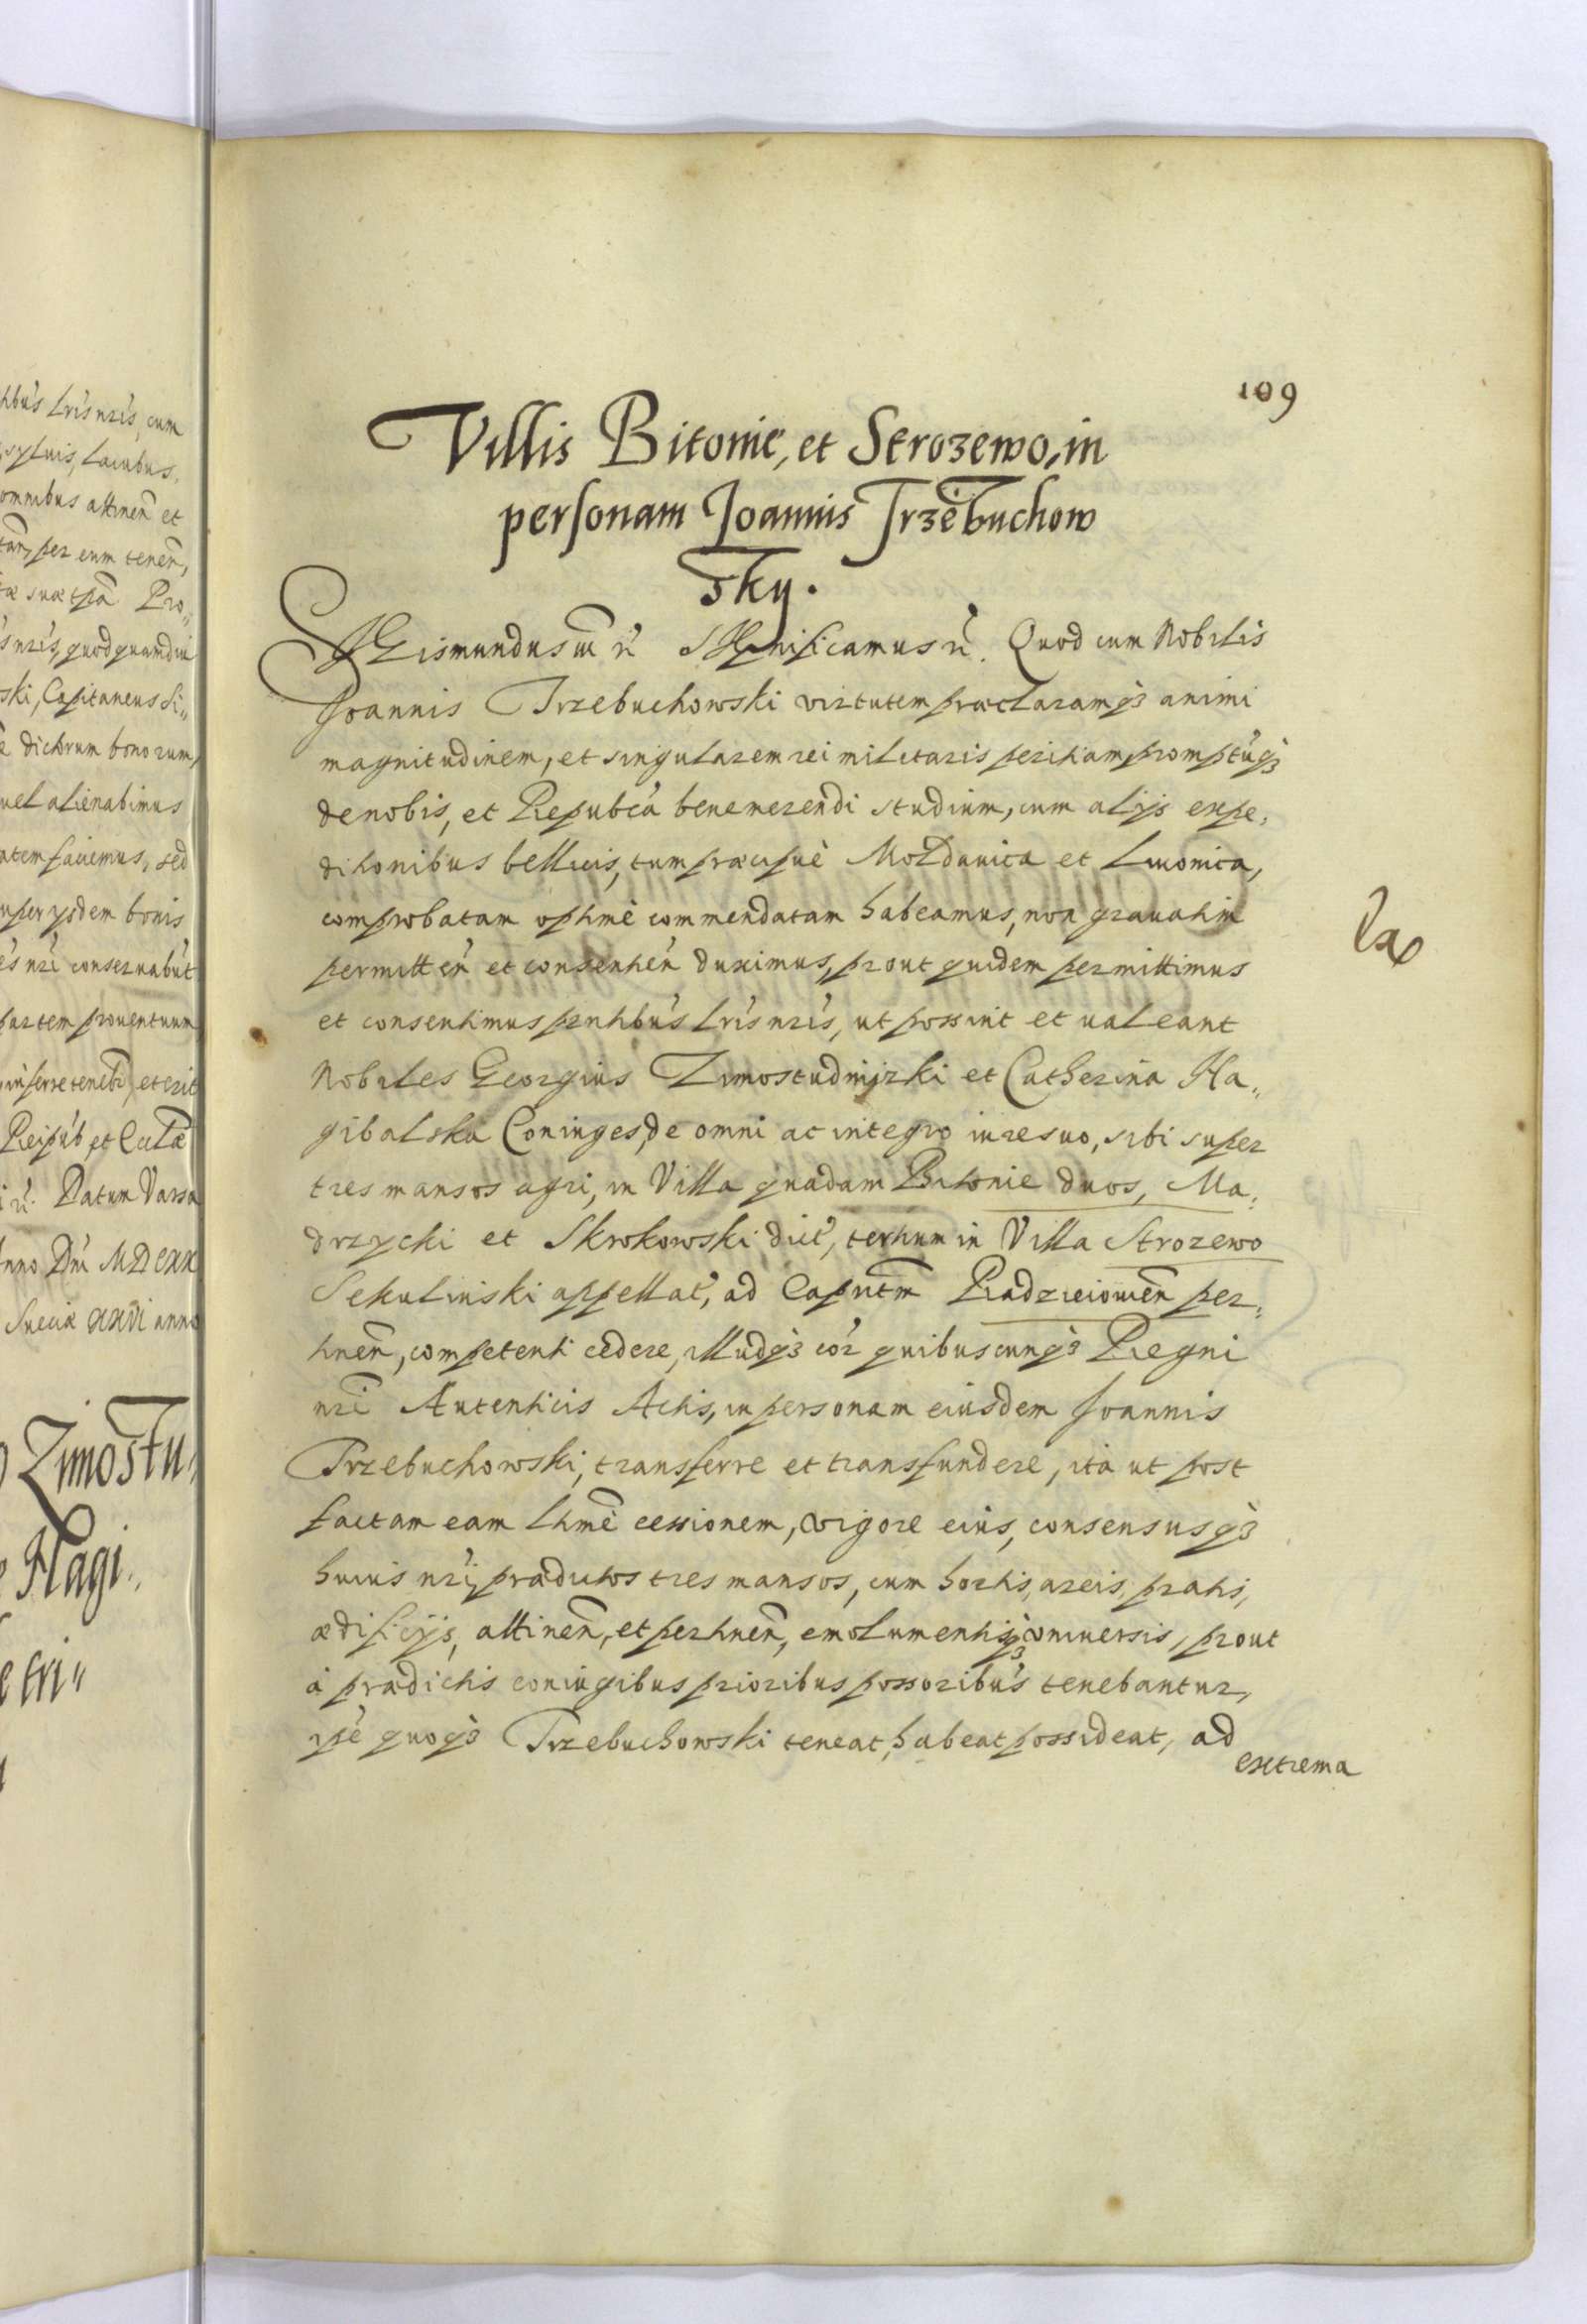 hbus lris nris, cum
syluis, lacubus,
omnibus attinen et
per eum tenen,
suæ Pro„
nris, quod quamdiu
ski, Capitaneus Si„
dictorum bonorum,
uel alienabimus
faciemus, sed
super ysdem bonis
nri conseruabut
partem prouentuum
inferre tenebr, et erit
Reipub et
Datum Varsa
Anno Dni MDCXX
Sueciæ XXVI anno
Zimostu„
Hagi„
tri„
109
Villis Bitonie, et Strozewo, in
personam Joannis Trzebuchow
sky.
Sigismundus III &. Significamus &. Quod cum Nobilis
Joannis Trzebuchowski virtutem præclaramq3 animi
magnitudinem, et singularem rei militaris peritiam, promptuq3
de nobis, et Republca benemerendi studium, cum alijs expe„
ditionibus bellicis, tum præcipuè Moldauica et Liuonica,
comprobatam optimè commendatam habeamus, non grauatim
permitten et consentien duximus, prout quidem permittimus
et consentimus pntibus lris nris, ut possint et ualeant
Nobiles Georgius Zimostudnijzki et Catherina Ha„
gibalska Coniuges, de omni ac integro iure suo, sibi super
tres mansos agri, in Villa quadam Bitonie duos, Ma„
drzycki et Skrokowski dict, tertium in Villa Strozewo
Sekulinski appellat, ad Capnтm Radzieiouien per„
tinen, competenti cedere, illudq3 cor quibuscunq3 Regni
nri Autenticis Actis, in personam eiusdem Joannis
Trzebuchowski, transferre et transfundere, ità ut post
factam eam ltimè cessionem, vigore eius, consensusq3
huius nri, prædictos tres mansos, cum hortis, areis, pratis,
ædificijs, attinen, et pertinen, emolumentisq3 vniuersis, prout
à prædictis coniugibus prioribus possoribus tenebantur,
ipe quoq3 Trzebuchowski teneat, habeat possideat, ad
extrema